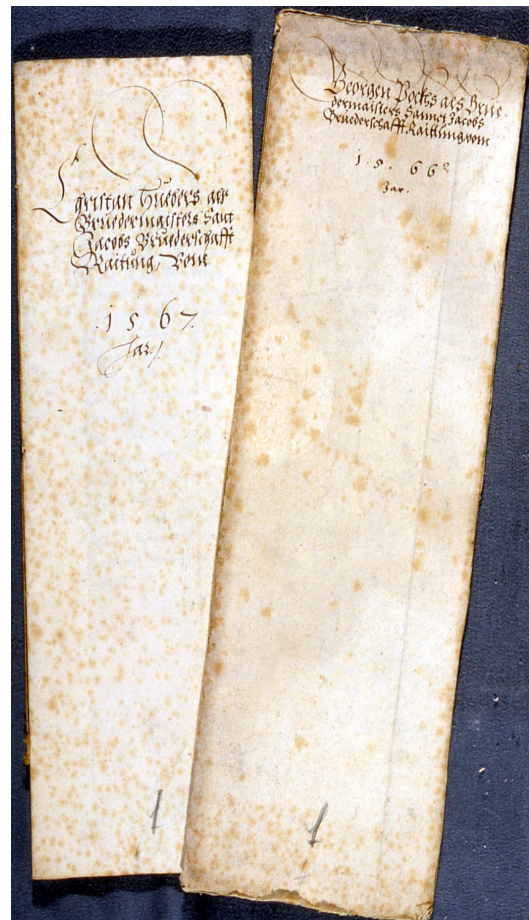 Cristan Huebers als
Bruedermaisters Sant
Jacobs Bruederschafft
Raitung, Vom
.1 5 67.
Jar.
Georgen als Brue-
dermaisters Sannct Jacobs
Bruederschafft Raittung vom
1.5.66
Jar.
1
1